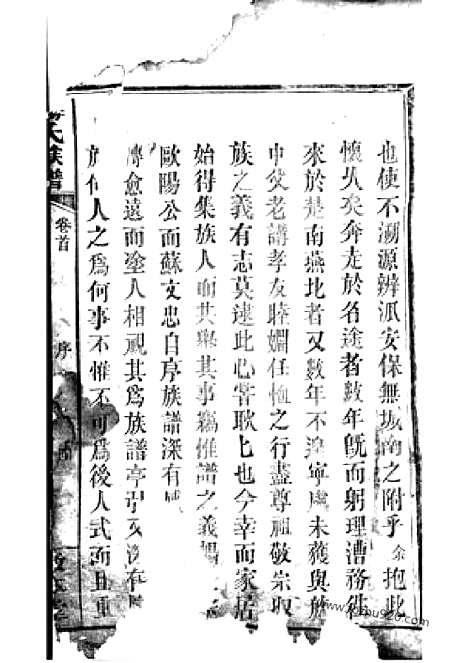 也使不溯源辨派安保無城南之附乎余抱此
懷久矣奔走於名途者數年旣而躬理漕務往
來於楚南燕北者又數年不遑寧處未獲與族
中父老講孝友睦婣任恤之行盡尊祖敬宗收
族之義有志莫逮此心嘗耿耿也今幸而家居
始得集族人而共舉其事竊惟譜之義
歐陽公而蘇文忠自序族譜深有
愈遠而塗人相視其為族譜亭引又
何人之為何事不惟不可為後人式而且重
氏族譜
卷首
序